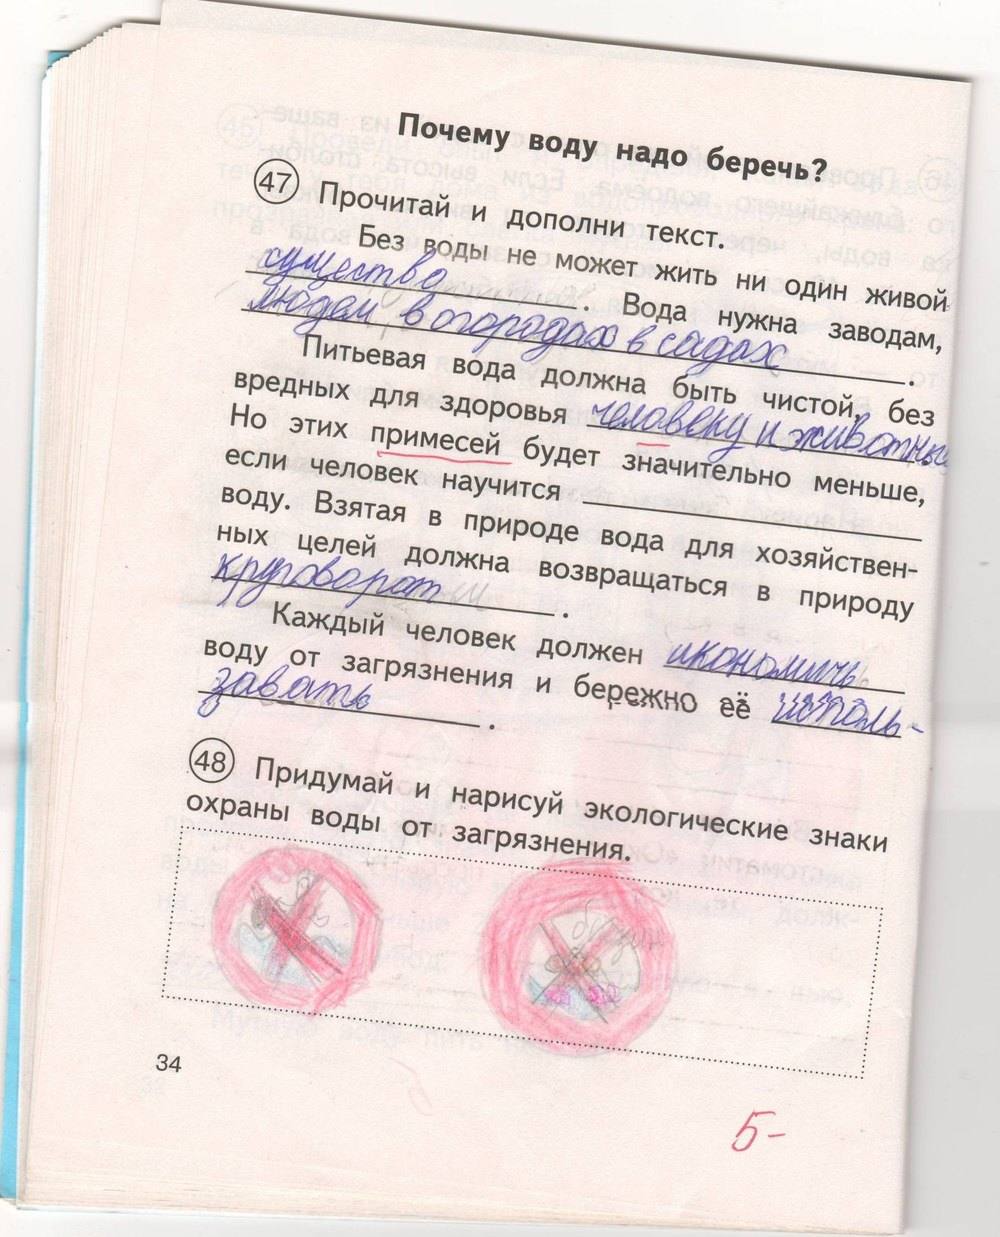 Почему воду надо беречь?
47 Прочитай и дополни текст.
Без воды не может жить ни один живой
существо. Вода нужна заводам,
людям в огородах в садах.
Питьевая вода должна быть чистой, без
вредных для здоровья человеку и животны
Но этих примесей будет значительно меньше,
если человек научится
воду. Взятая в природе вода для хозяйствен-
ных целей должна возвращаться в природу
круговорот.
Каждый человек должен икономить
воду от загрязнения и бережно её исполь-
завать.
48 Придумай и нарисуй экологические знаки
охраны воды от загрязнения.
34
5-